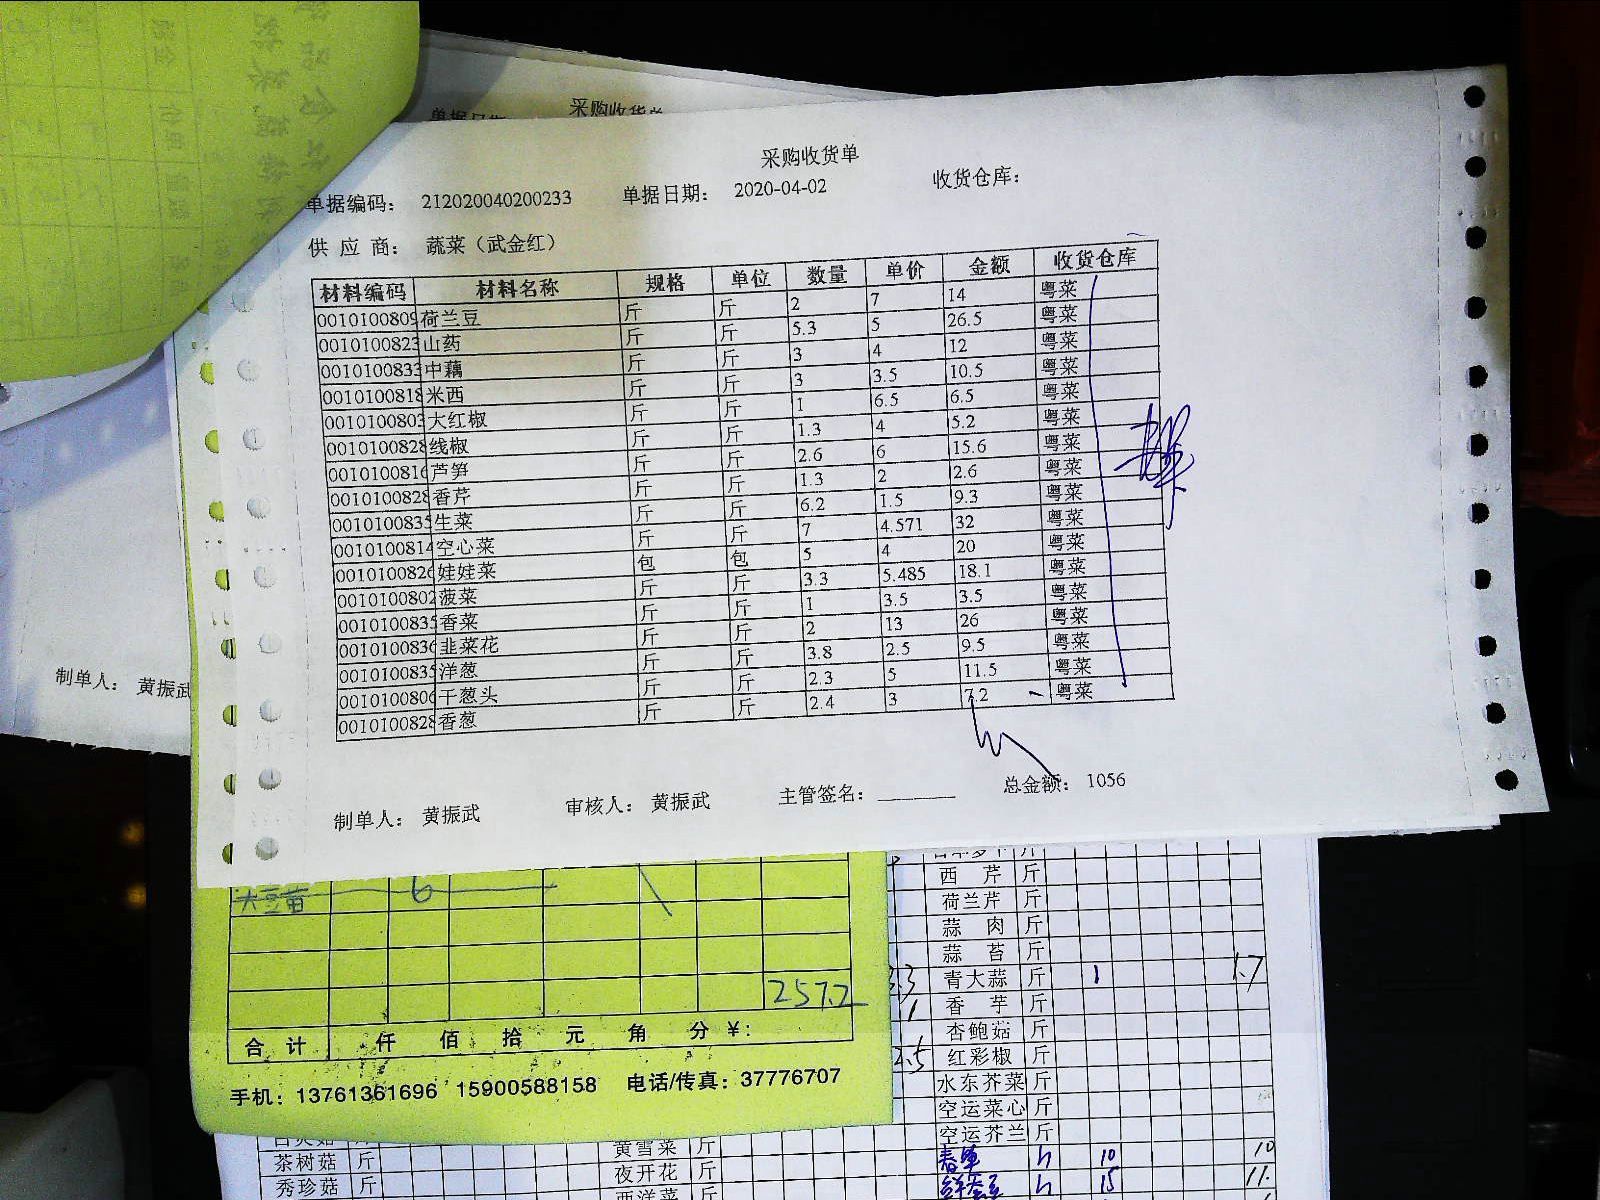 采购收货单
单据编码: 212020040200233 单据日期: 2020-04-02 收货仓库:
供 应 商: 蔬菜（武金红）
材料编码 材料名称 规格 单位 数量 单价 金额 收货仓库
0010100809 荷兰豆 斤 斤 2 7 14 粤菜
0010100823 山药 斤 斤 5.3 5 26.5 粤菜
0010100833 中藕 斤 斤 3 4 12 粤菜
0010100818 米西 斤 斤 3 3.5 10.5 粤菜
0010100803 大红椒 斤 斤 1 6.5 6.5 粤菜
0010100828 线椒 斤 斤 1.3 4 5.2 粤菜
0010100816 芦笋 斤 斤 2.6 6 15.6 粤菜
0010100828 香芹 斤 斤 1.3 2 2.6 粤菜
0010100835 生菜 斤 斤 6.2 1.5 9.3 粤菜
0010100814 空心菜 斤 斤 7 4.571 32 粤菜
0010100826 娃娃菜 包 包 5 4 20 粤菜
0010100802 菠菜 斤 斤 3.3 5.485 18.1 粤菜
0010100835 香菜 斤 斤 1 3.5 3.5 粤菜
0010100836 韭菜花 斤 斤 2 13 26 粤菜
0010100835 洋葱 斤 斤 3.8 2.5 9.5 粤菜
0010100806 干葱头 斤 斤 2.3 5 11.5 粤菜
0010100828 香葱 斤 斤 2.4 3 7.2 粤菜
制单人: 黄振武 审核人: 黄振武 主管签名: 总金额: 1056
采购收货单
制单人: 黄振武
大豆苗 6
257.2
合 计 仟 佰 拾 元 角 分 ¥:
手机: 13761361696 15900588158 电话/传真: 37776707
西 芹 斤
荷兰芹 斤
蒜 肉 斤
蒜 苔 斤
青大蒜 斤 1 1.7
香 芋 斤
杏鲍菇 斤
红彩椒 斤
水东芥菜 斤
空运菜心 斤
空运芥兰 斤
10 10
15 11.
黄雪菜 斤
夜开花 斤
西洋菜 斤
茶树菇 斤
秀珍菇 斤